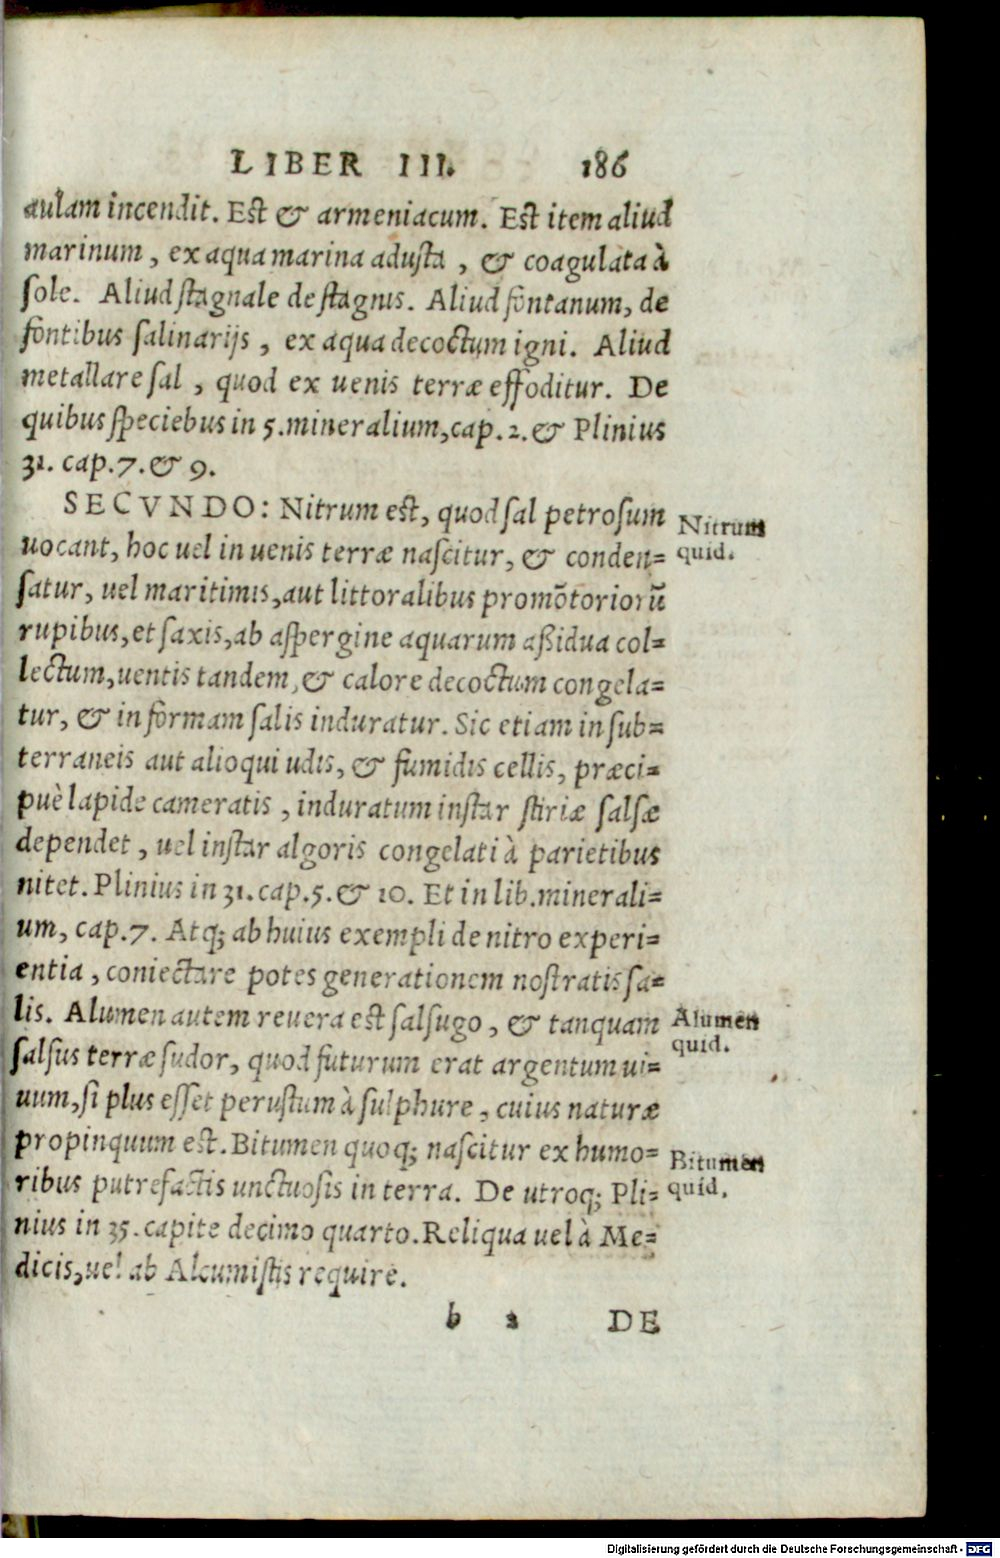 LIBER III. 186
aulam incendit. Est & armeniacum. Est item aliud
marinum, ex aqua marina adusta, & coagulata à
sole. Aliud stagnale de stagnis. Aliud fontanum, de
fontibus salinarijs, ex aqua decoctum igni. Aliud
metallare sal, quod ex uenis terræ effoditur. De
quibus speciebus in 5. mineralium, cap. 2. & Plinius
31. cap. 7. & 9.
SECVNDO: Nitrum est, quod sal petrosum
Nitrum
uocant, hoc uel in uenis terræ nascitur, & conden=
quid.
satur, uel maritimis, aut littoralibus promōtoriorū
rupibus, et saxis, ab aspergine aquarum aßidua col=
lectum, uentis tandem, & calore decoctum congela=
tur, & in formam salis induratur. Sic etiam in sub=
terraneis aut alioqui udis, & fumidis cellis, præci=
puè lapide cameratis, induratum instar stiriæ salsæ
dependet, uel instar algoris congelati à parietibus
nitet. Plinius in 31. cap. 5. & 10. Et in lib. minerali=
um, cap. 7. Atq; ab huius exempli de nitro experi=
entia, coniectare potes generationem nostratis sa=
lis. Alumen autem reuera est salsugo, & tanquam
Alumen
salsus terræ sudor, quod futurum erat argentum ui=
quid.
uum, si plus esset perustum à sulphure, cuius naturæ
propinquum est. Bitumen quoq; nascitur ex humo=
Bitumen
ribus putrefactis unctuosis in terra. De utroq; Pli=
quid.
nius in 35. capite decimo quarto. Reliqua uel à Me=
dicis, uel ab Alcumistis require.
b 2 DE
Digitalisierung gefördert durch die Deutsche Forschungsgemeinschaft - DFG